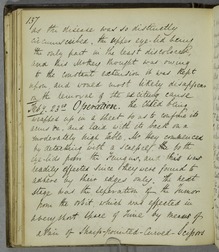 137
As the disease was so distinctly
circumscribed, the upper eyelid being
the only part in the least discolored,
and this Mr thought was owing
to the constant extension it was kept
upon, and would most likely disappear
on the removal of the existing cause
Feby 23rd Operation. The child being
wrapped up in a sheet so as to confine its
arms &c, and laid with its back on a
moderately high table. Mr commenced
by detaching with a Scalpel the both
eyelids from the Fungus, and this was
readily effected since they were found to
adhere by their edges only. The next
stage was the separation of the tumor
from the orbit which was effected in
a very short space of time by means of
a Pair of Sharp-pointed-Curved-Scissors